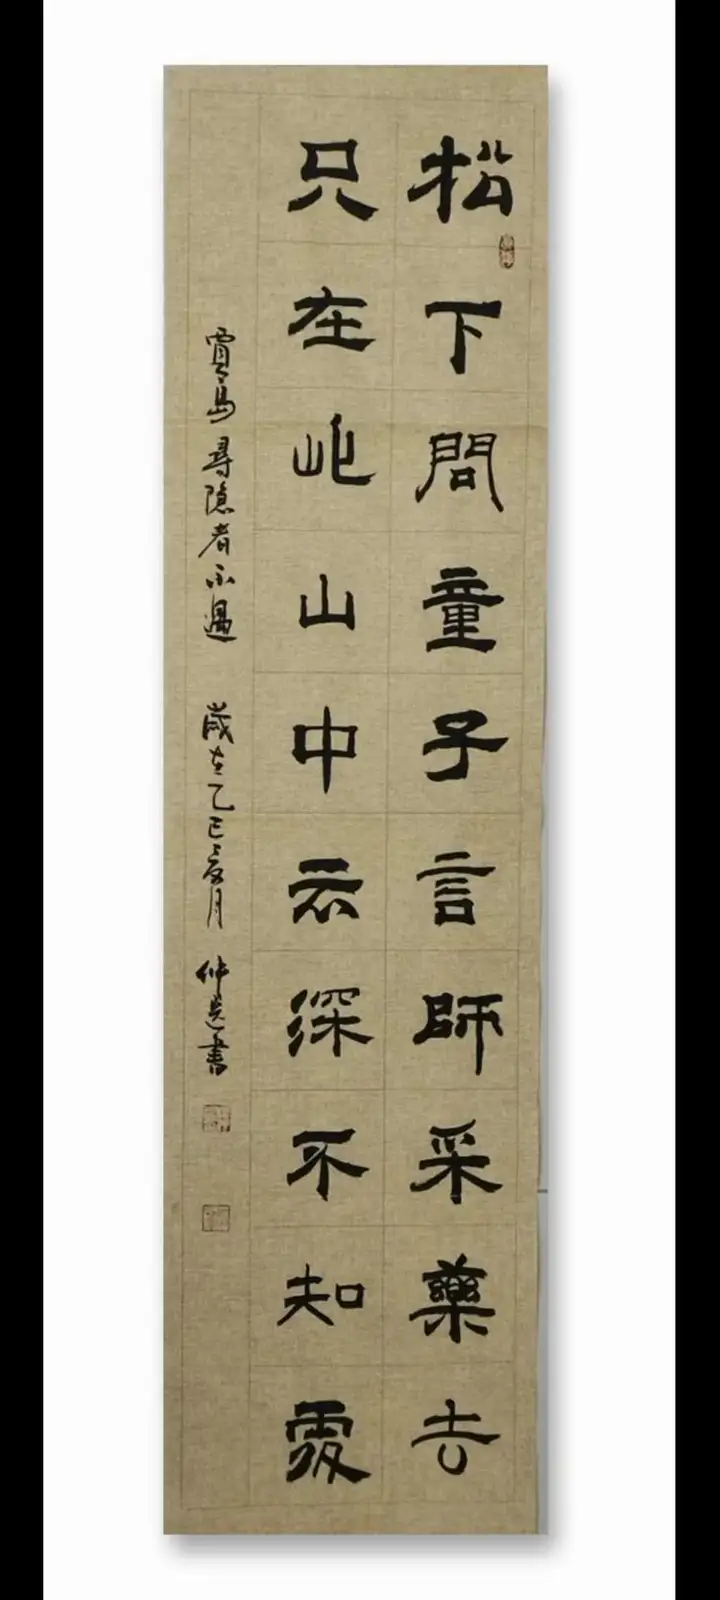 松下問童子言師采藥去
只在此山中云深不知處
賈島尋隐者不遇 歲在乙巳夏月 仲 書